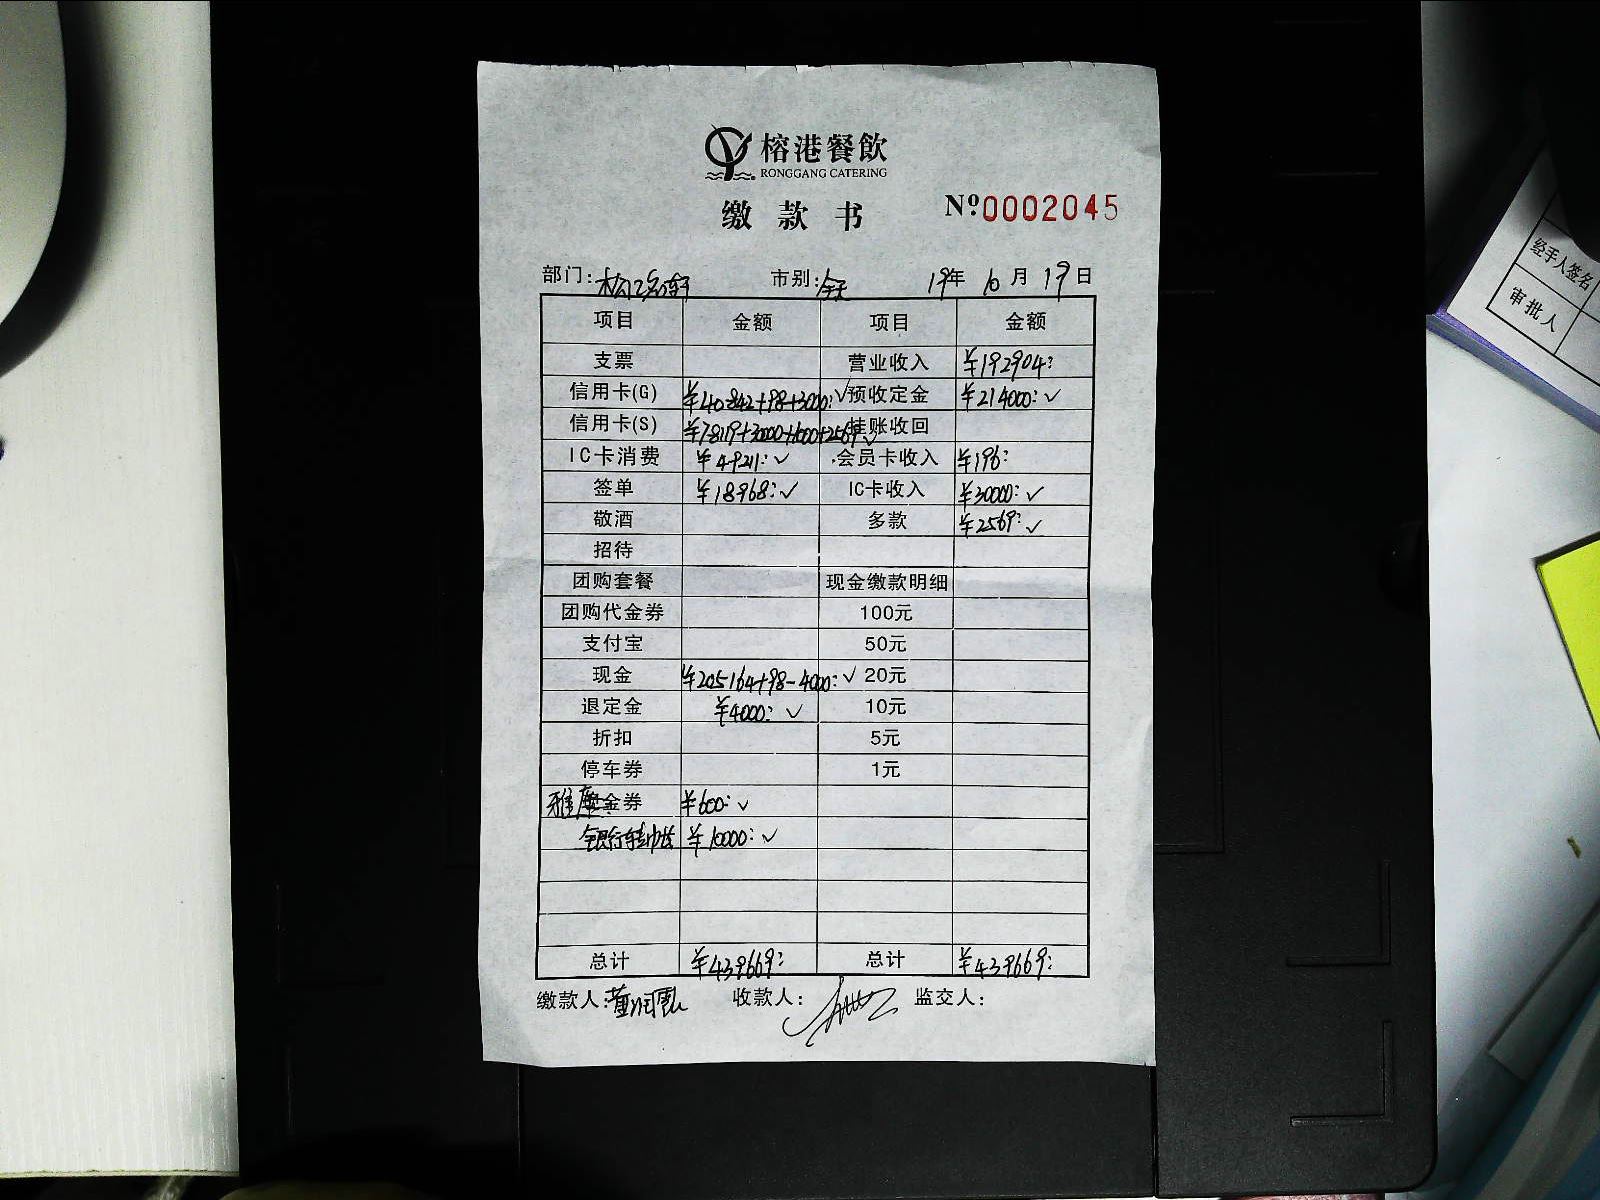 榕港餐飲
RONGGANG CATERING
缴款书
Nº0002045
部门: 市别:全天 19年 10月 19日
项目 金额 项目 金额
支票 营业收入 ¥192904:
信用卡(G) ¥40842+98+3000:✓ 预收定金 ¥214000:✓
信用卡(S) ¥78119+30000+1000+2569:✓ 挂账收回
IC卡消费 ¥49211:✓ 会员卡收入 ¥196:
签单 ¥18968:✓ IC卡收入 ¥30000:✓
敬酒 多款 ¥2569:✓
招待
团购套餐 现金缴款明细
团购代金券 100元
支付宝 50元
现金 ¥205164+98-4000:✓ 20元
退定金 ¥4000:✓ 10元
折扣 5元
停车券 1元
雅座金券 ¥600:✓
银行转帐 ¥10000:✓
总计 ¥439669: 总计 ¥439669:
缴款人: 收款人: 监交人:
经手人签名
审批人